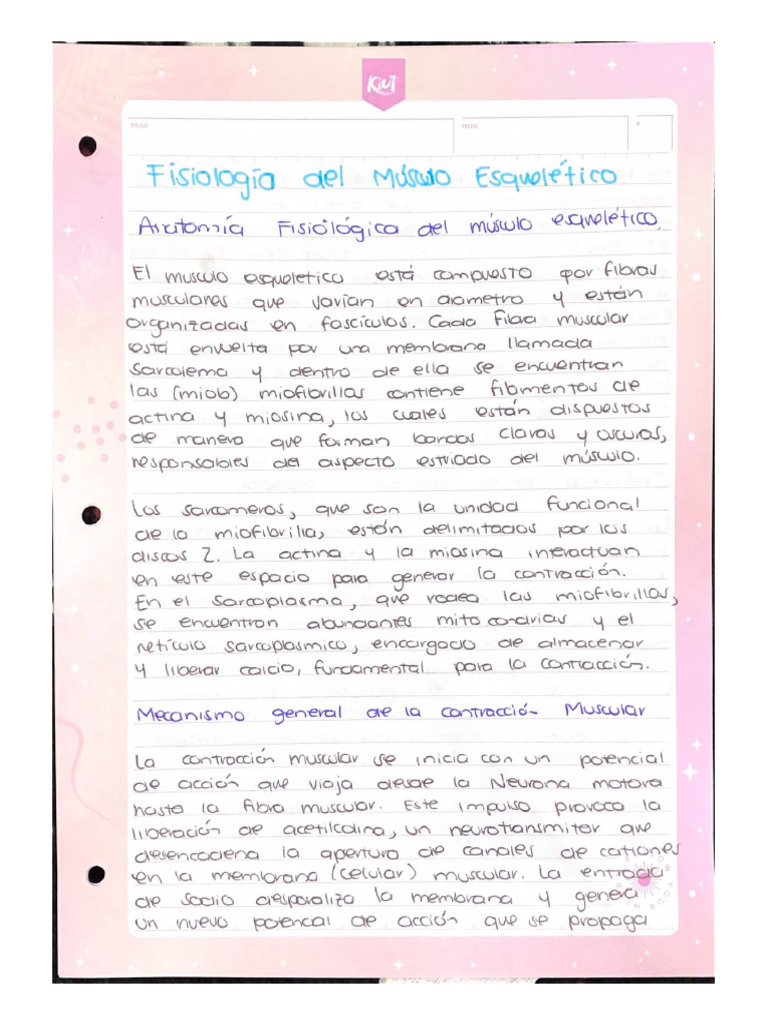 KIUT
TITULO
FECHA
#
Fisiología del Músculo Esquelético
Anatomía Fisiológica del músculo esquelético.
El musculo esqueletico está compuesto por fibras
musculares que varían en diametro y están
organizadas en fascículos. Cada Fibra muscular
está envuelta por una membrana llamada
Sarcolema y dentro de ella se encuentran
las (miob) miofibrillas contiene filimentos de
actina y miosina, los cuales están dispuestos
de manera que forman bandas claras y oscuras,
responsables del aspecto estriado del músculo.
Los sarcomeros, que son la unidad funcional
de la miofibrilla, están delimitados por los
discos Z. La actina y la miosina interactuan
en este espacio para generar la contracción.
En el sarcoplasma, que rodea las miofibrillas,
se encuentran abundantes mitocondrias y el
retículo sarcoplasmico, encargado de almacenar
y liberar calcio, fundamental para la contracción.
Mecanismo general de la contracción Muscular
La contracción muscular se inicia con un potencial
de acción que viaja desde la Neurona motora
hasta la fibra muscular. Este impulso provoca la
liberación de acetilcolina, un neurotransmitor que
desencadena la apertura de canales de cationes
en la membrana (celular) muscular. La entrada
de Sodio despolariza la membrana y genera
un nuevo potencal de acción que se propaga